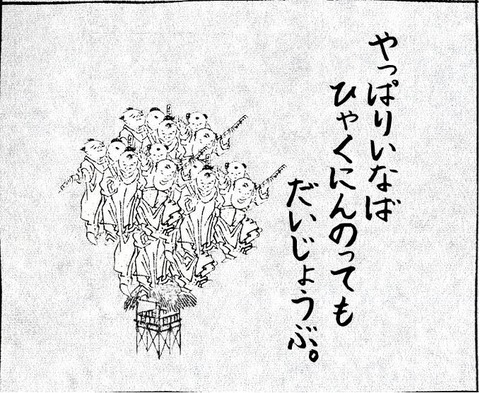 やっぱりいなば
ひゃくにんのっても
だいじょうぶ。